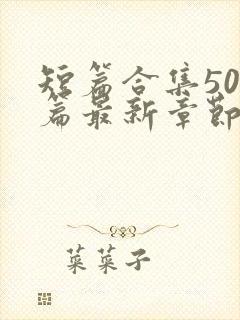 短篇合集50
篇最新章节
菜菜子